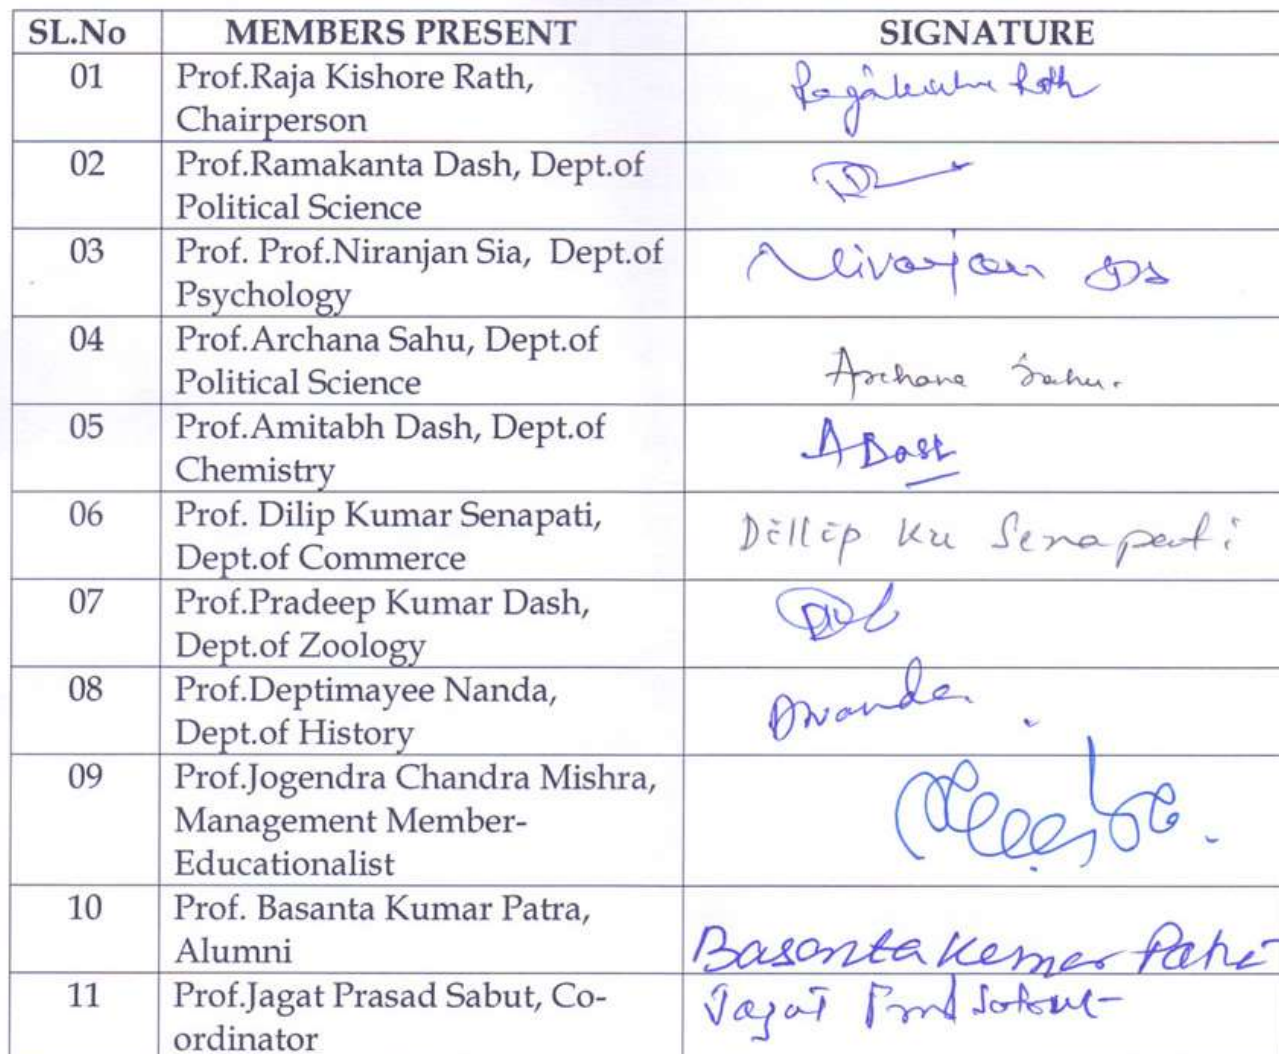 SL.No MEMBERS PRESENT SIGNATURE
01 Prof.Raja Kishore Rath,
Chairperson
02 Prof.Ramakanta Dash, Dept.of
Political Science
03 Prof. Prof.Niranjan Sia, Dept.of Niranjan
Psychology
04 Prof.Archana Sahu, Dept.of
Political Science Archana Sahu.
05 Prof.Amitabh Dash, Dept.of ADash
Chemistry
06 Prof. Dilip Kumar Senapati, Dillip Ku Senapati
Dept.of Commerce
07 Prof.Pradeep Kumar Dash,
Dept.of Zoology
08 Prof.Deptimayee Nanda, DNanda
Dept.of History
09 Prof.Jogendra Chandra Mishra,
Management Member-
Educationalist
10 Prof. Basanta Kumar Patra,
Alumni Basanta Kumar
11 Prof.Jagat Prasad Sabut, Co- Jagat
ordinator